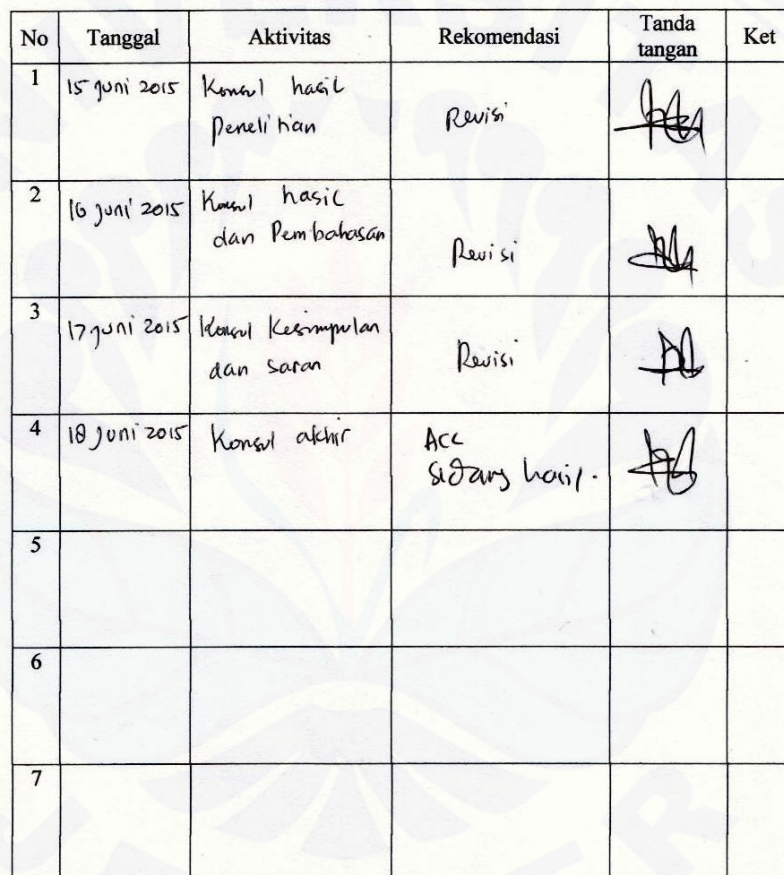 No Tanggal Aktivitas Rekomendasi Tanda tangan Ket
1 15 Juni 2015 Konsul hasil
Penelitian Revisi
2 16 Juni 2015 Konsul hasil
dan Pembahasan Revisi
3 17 Juni 2015 Konsul Kesimpulan
dan saran Revisi
4 18 Juni 2015 Konsul akhir ACC
sidang hasil.
5
6
7